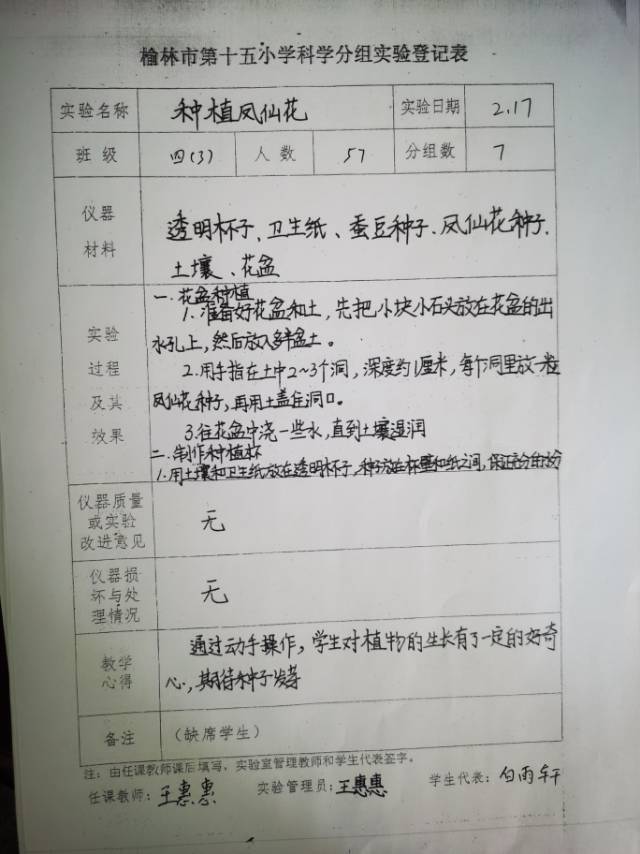 榆林市第十五小学科学分组实验登记表
实验名称 种植凤仙花 实验日期 2.17
班级 四(3) 人数 57 分组数 7
仪器材料 透明杯子、卫生纸、蚕豆种子、凤仙花种子、
土壤、花盆
实验过程及其效果 一.花盆种植
1.准备好花盆和土,先把小块小石头放在花盆的出
水孔上,然后放入多半盆土。
2.用手指在土中2~3个洞,深度约1厘米,每个洞里放一粒
凤仙花种子,再用土盖住洞口。
3.往花盆中浇一些水,直到土壤湿润
二.制作种植杯
1.用土壤和卫生纸放在透明杯子,种子放在杯壁和纸之间,保证充分的水分
仪器质量或实验改进意见 无
仪器损坏与处理情况 无
教学心得 通过动手操作,学生对植物的生长有了一定的好奇
心,期待种子发芽
备注 (缺席学生)
注:由任课教师课后填写,实验室管理教师和学生代表签字。
任课教师:王惠惠 实验管理员:王惠惠 学生代表:白雨轩